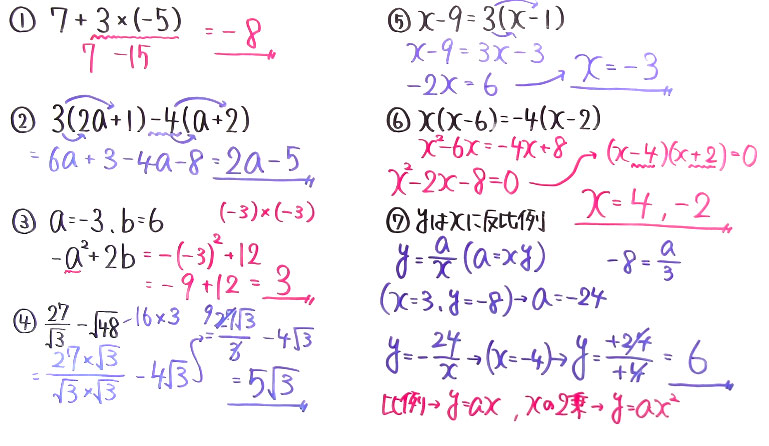 ① 7 + 3 × (-5) = -8
7 -15
② 3(2a+1) -4(a+2)
= 6a+3-4a-8 = 2a-5
③ a=-3、b=6 (-3)×(-3)
-a²+2b = -(-3)²+12
= -9+12 = 3
④ 27/√3 - √48 -16×3
= 27×√3/√3×√3 - 4√3
= 9 27√3/3 - 4√3
= 5√3
⑤ x-9=3(x-1)
x-9=3x-3
-2x=6 → x=-3
⑥ x(x-6)=-4(x-2)
x²-6x=-4x+8
x²-2x-8=0 → (x-4)(x+2)=0
x=4,-2
⑦ yはxに反比例
y=a/x (a=xy) -8=a/3
(x=3、y=-8)→a=-24
y=-24/x→(x=-4)→y=+24/+4 = 6
比例→y=ax , xの2乗→y=ax²